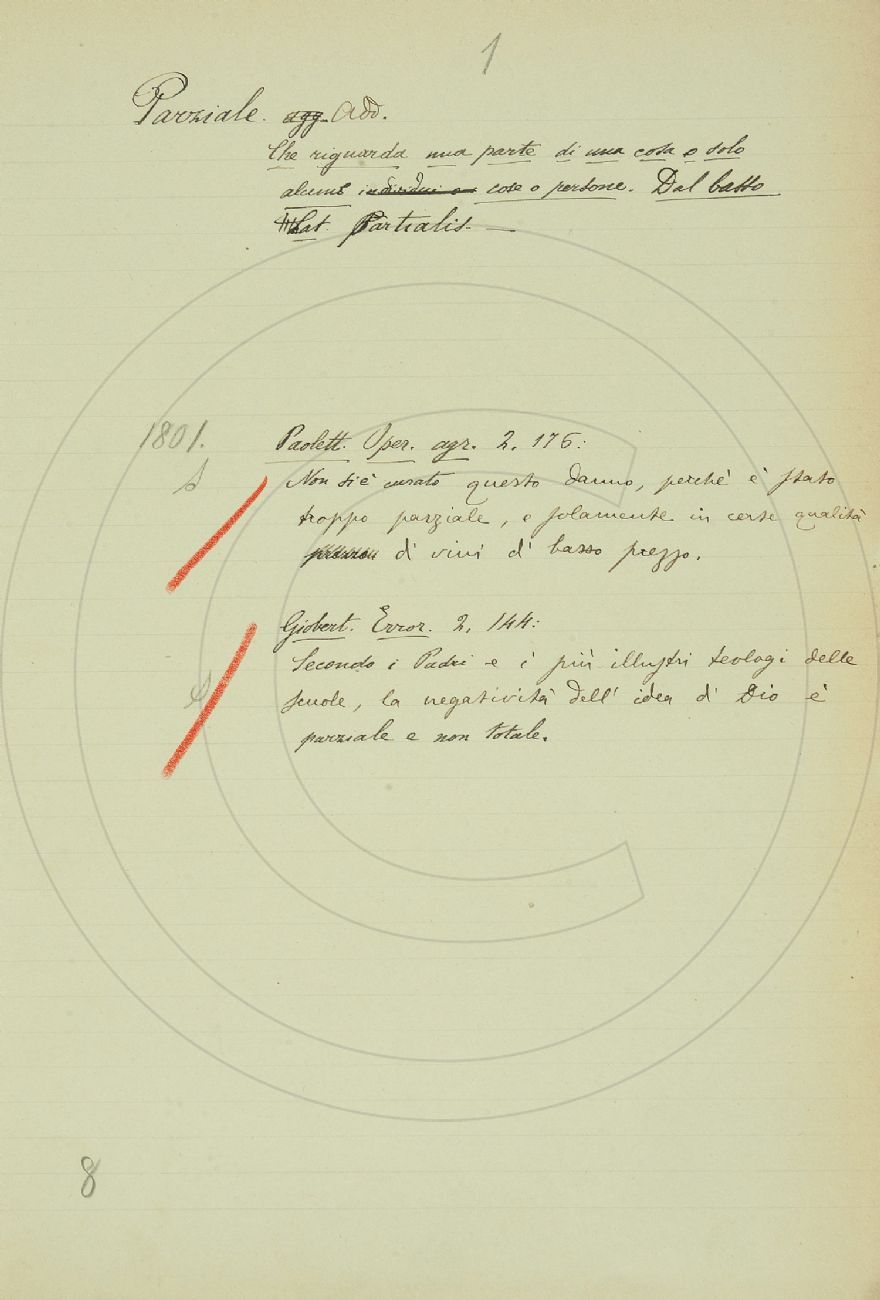 1
Parziale. agg. Add.
Che riguarda una parte di una cosa o solo
alcune individui o cose o persone. Dal basso
lat. Partialis. —
1801. Paolett. Oper. agr. 2. 176:
S Non si è curato questo danno, perchè è stato
troppo parziale, e solamente in certe qualità
di vini di basso prezzo.
Giobert. Error. 2. 144:
Secondo i Padri e i più illustri teologi delle
S scuole, la negatività dell' idea di Dio è
parziale e non totale.
8